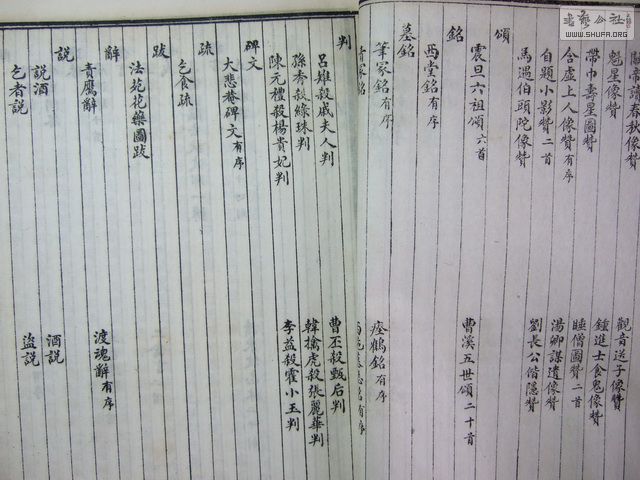 讀春秋像贊　觀音送子像贊
魁星像贊　鍾進士食鬼像贊
帶巾壽星圖贊　睡僧圖贊二首
含虛上人像贊有序　湯卿謀遺像贊
自題小影贊二首　劉長公偕隱贊
馬過伯頭陀像贊
頌
震旦六祖頌六首　曹溪五世頌二十首
銘
西堂銘有序
墓銘
筆冢銘有序　瘞鶴銘有序
青冢銘　墓志銘有序
判
呂雉殺戚夫人判　曹丕殺甄后判
孫秀殺綠珠判　韓擒虎殺張麗華判
陳元禮殺楊貴妃判　李益殺霍小玉判
碑文
大悲菴碑文有序
疏
乞食疏
跋
法苑花藥圖跋
辭
責鷹辭　渡魂辭有序
説
説酒　酒説
乞者説　盜説
WWW.SHUFA.ORG